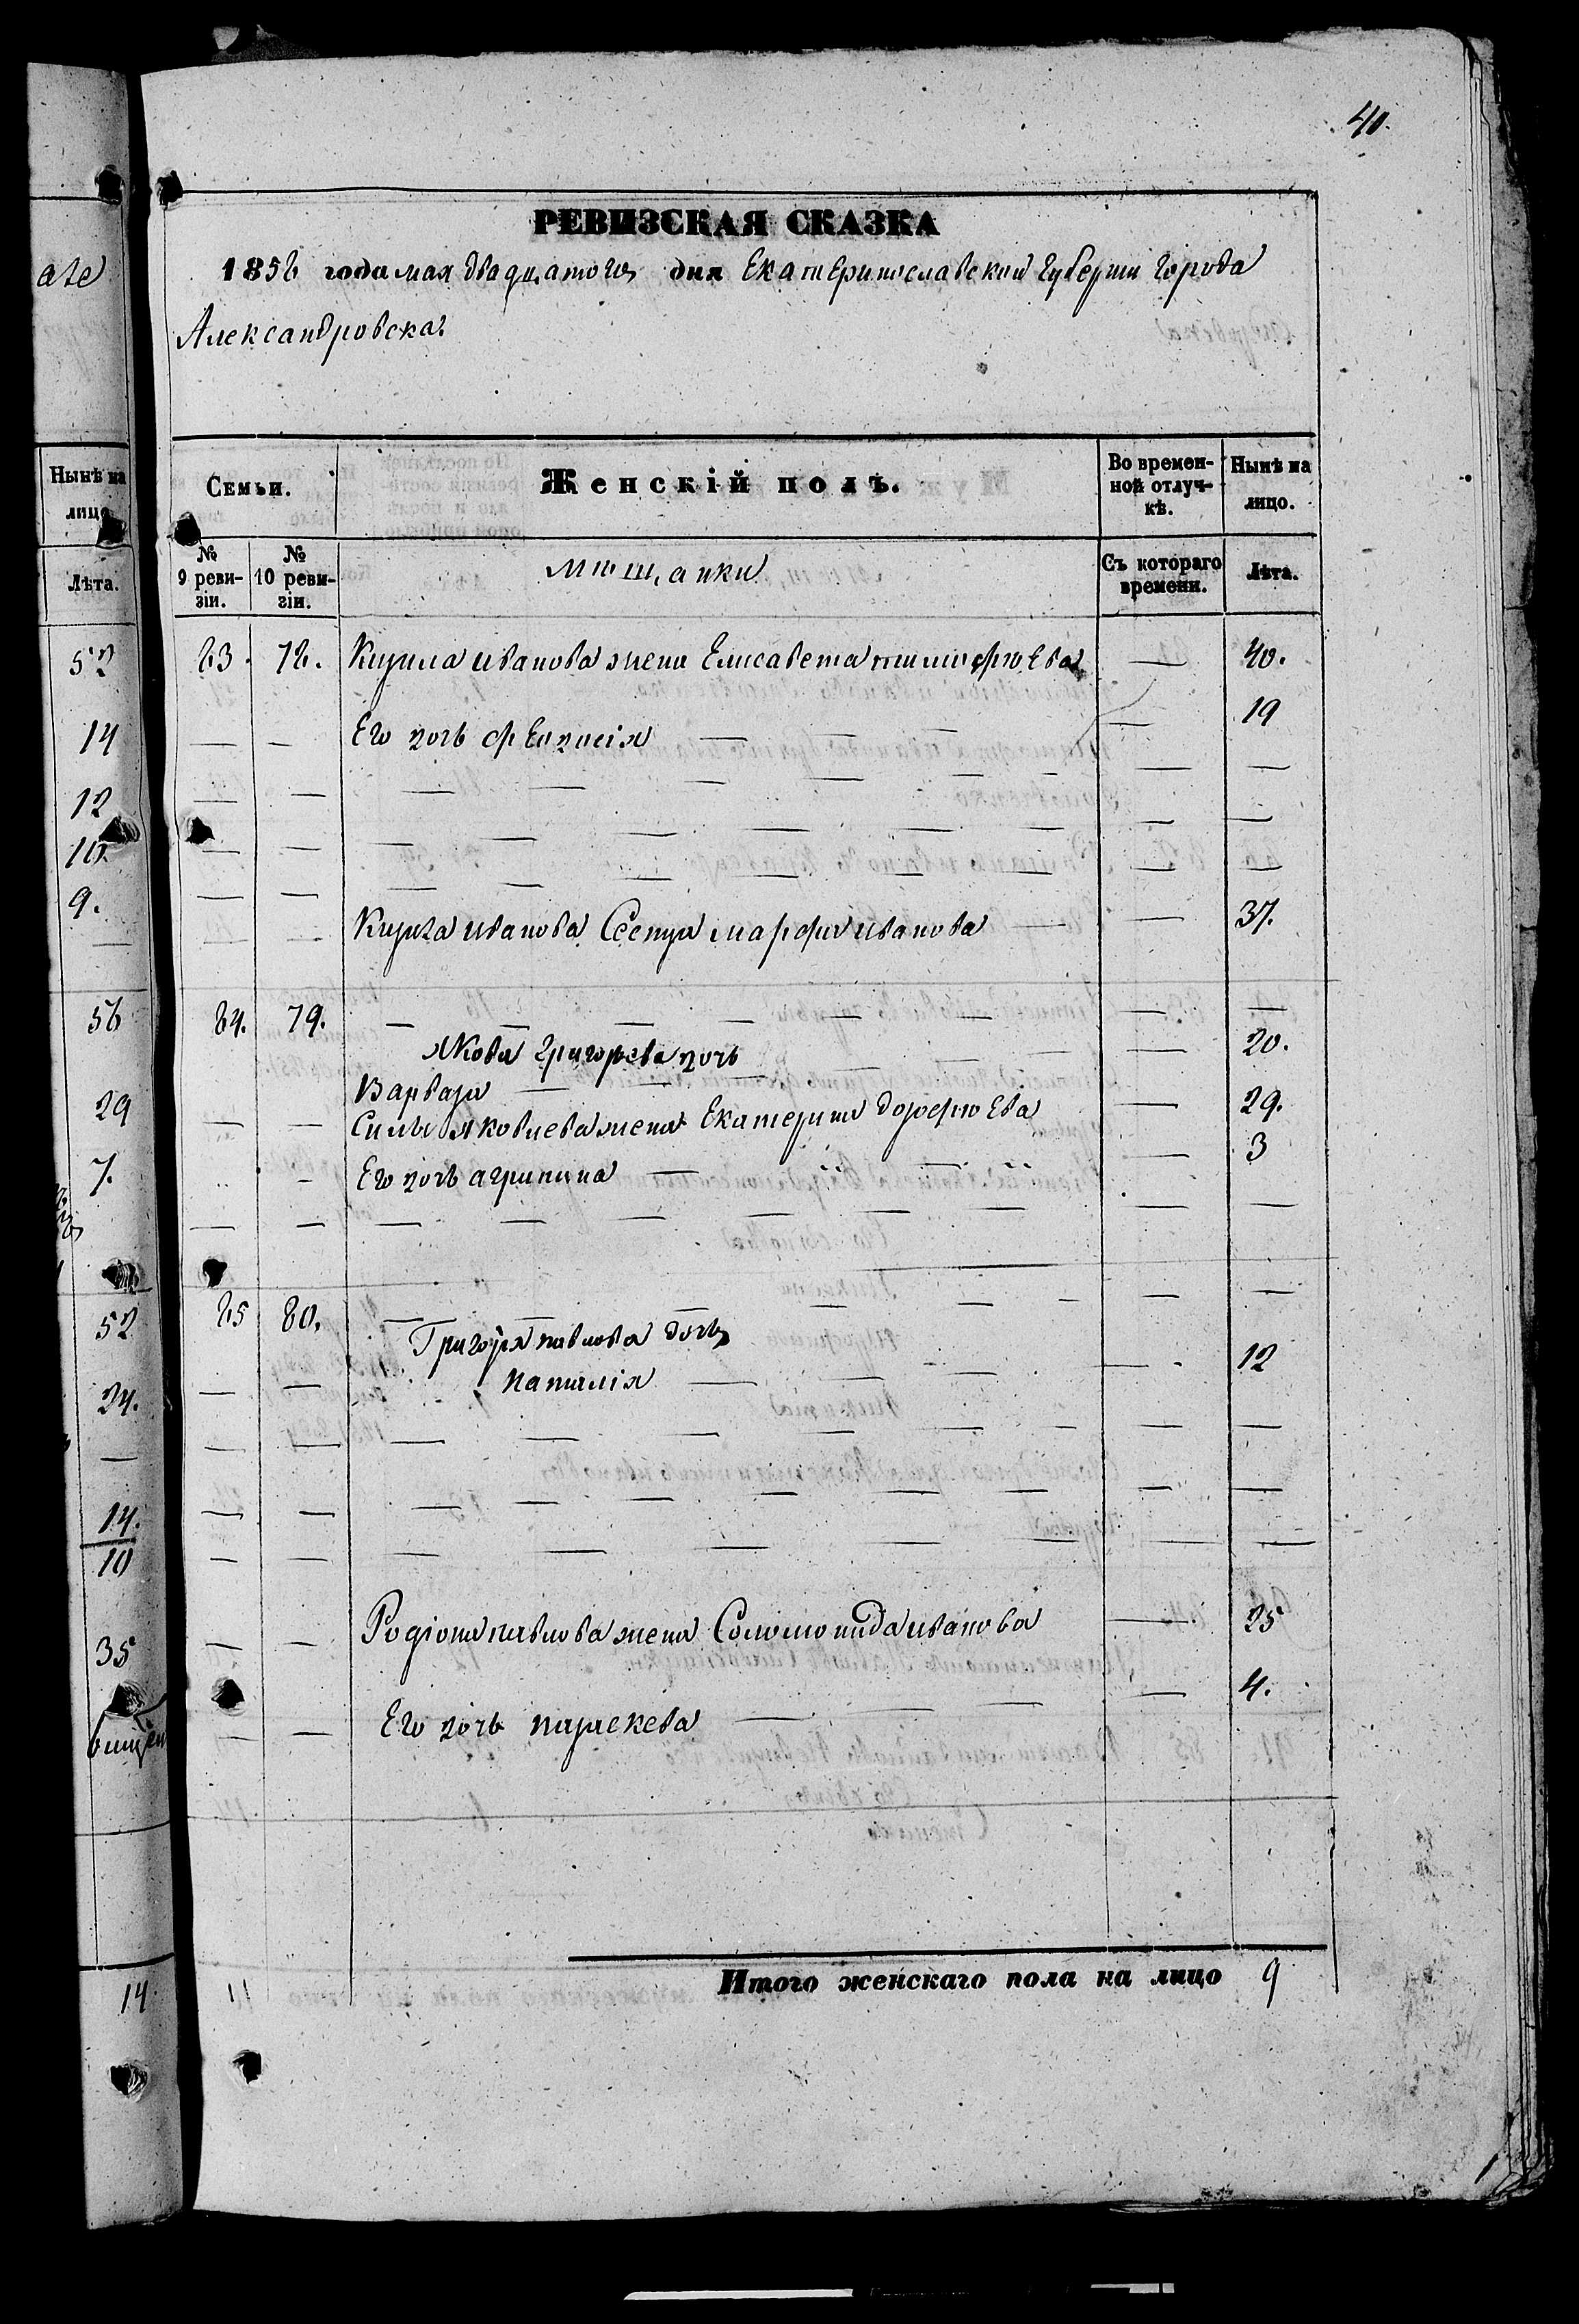 40.
РЕВИЗСКАЯ СКАЗКА
1858 года мая двадцатого дня Екатеринославской губерни города
Александровска.
Семьи.
Женскій полъ.
Во времен-
ной отлуч-
кѣ.
Нынѣ на
лицо.
№
9 реви-
зіи.
№
10 реви-
зіи.
мѣщанки
Съ котораго
времени.
Лѣта.
83. 78. Кирила иванова жена Елисавета тимофеева — 40.
Его дочь феодосія — 19
Кирила иванова Сестра марфа иванова — 37.
84. 79. —
якова григорьева дочь — 20.
Варвара
Силы яковлева жена Екатерина дорофеева — 29.
Его дочь агрипина — 3
85 80. —
Григорія павлова дочь
наталія — 12
Родіона павлова жена Соломонида иванова — 25
Его дочь параскева — 4.
Итого женскаго пола на лицо 9
Нынѣ на
лицо
Лѣта.
52
14
12
10.
9.
56
29
7.
52
24.
14.
10
35
14